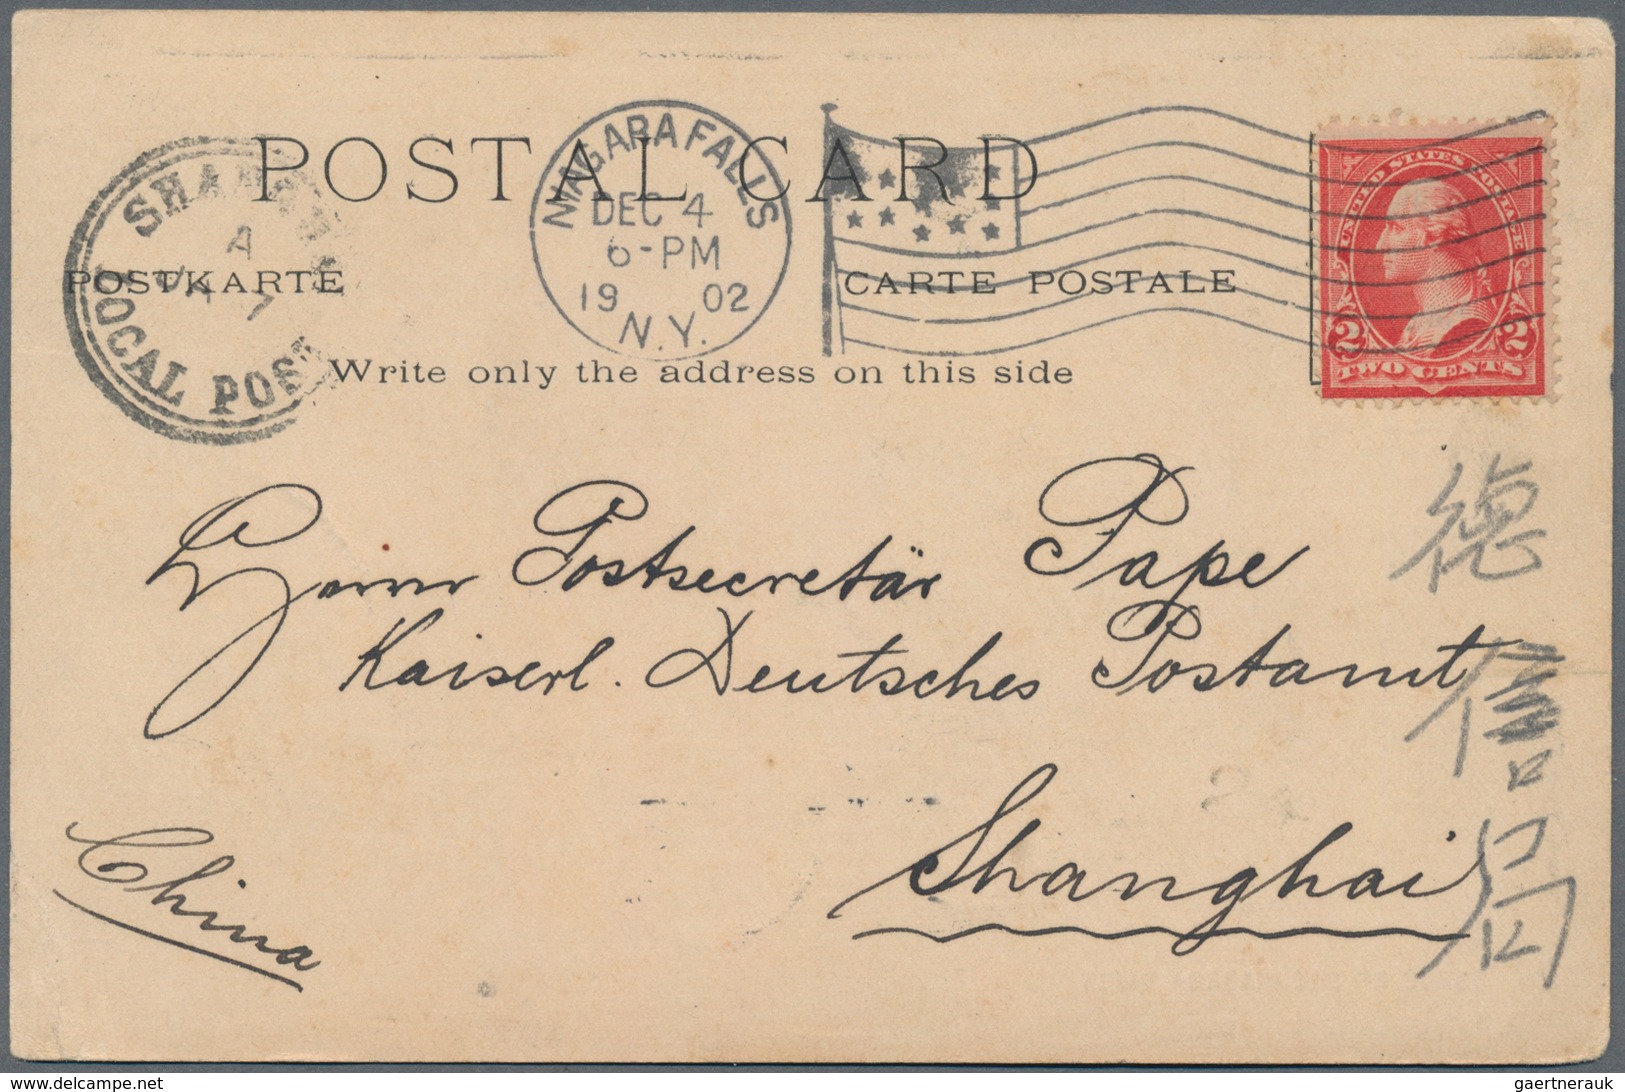 POSTAL CARD
NIAGARA FALLS
DEC 4
6-PM
1902
N.Y.
SHANGHAI
A
7
LOCAL POST
POSTKARTE
CARTE POSTALE
Write only the address on this side
UNITED STATES POSTAGE
2 2
TWO CENTS
Herrn Postsecretär Pape
Kaiserl. Deutsches Postamt
Shanghai
China
德信局
www.delcampe.net
gaertnerauk